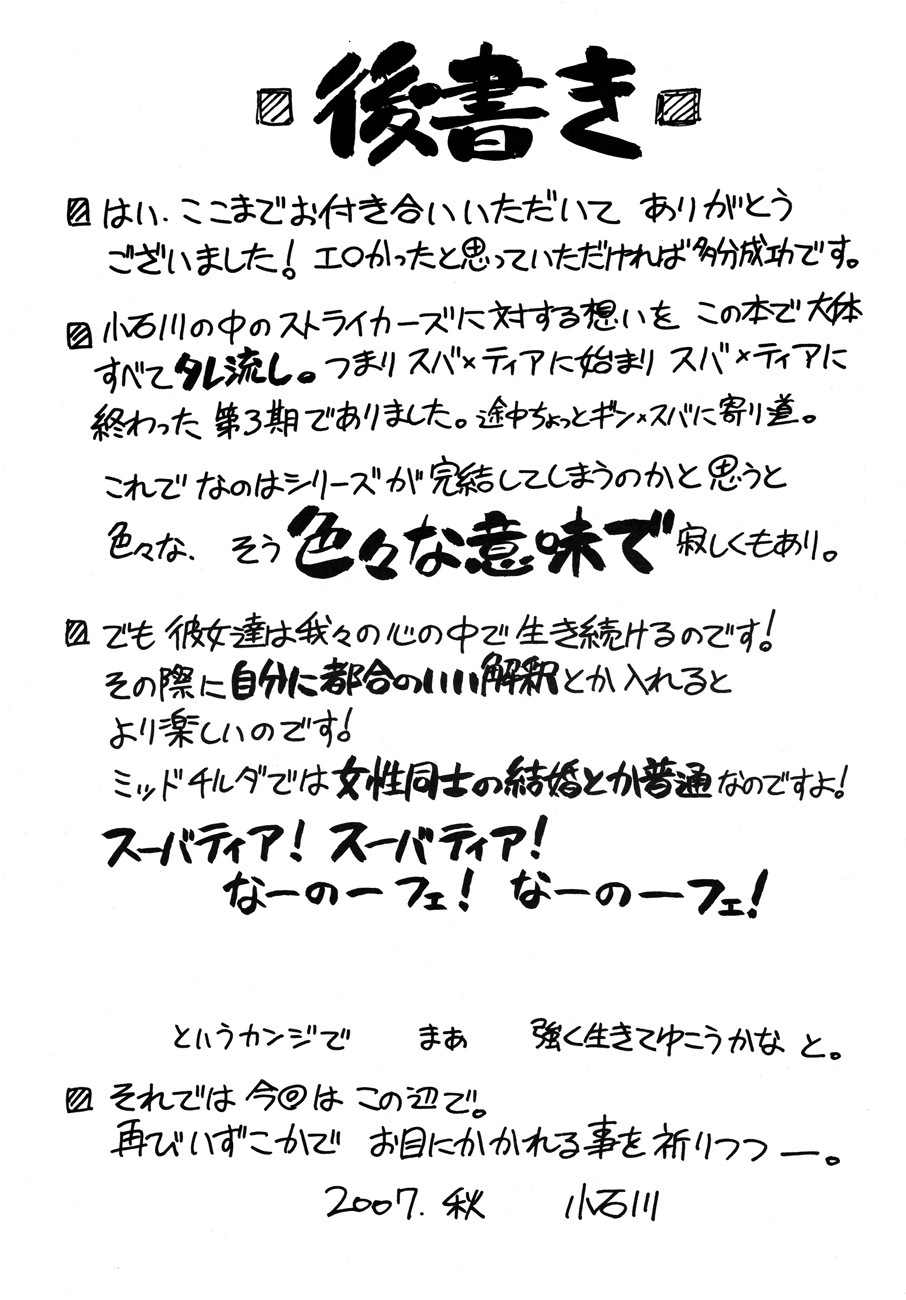 後書き
はい、ここまでお付き合いいただいて ありがとう
ございました! エロかったと思っていただければ多分成功です。
小石川の中のストライカーズに対する想いを この本で大体
すべてタレ流し。つまり スバ×ティアに始まり スバ×ティアに
終わった 第3期でありました。途中ちょっとギン×スバに寄り道。
これで なのはシリーズが完結してしまうのかと思うと
色々な、そう色々な意味で寂しくもあり。
でも 彼女達は我々の心の中で生き続けるのです!
その際に自分に都合のいい解釈とか入れると
より楽しいのです!
ミッドチルダでは女性同士の結婚とか普通なのですよ!
スーバティア! スーバティア!
なーのーフェ! なーのーフェ!
というカンジで まぁ 強く生きてゆこうかな と。
それでは 今回は この辺で。
再びいずこかで お目にかかれる事を祈りつつ ー。
2007. 秋 小石川